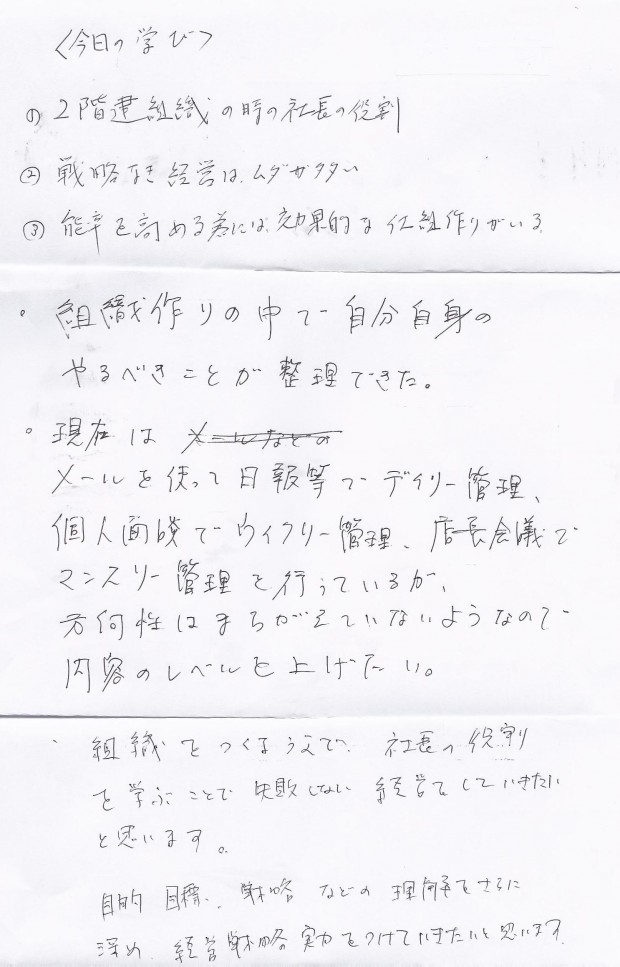 〈今日の学び〉
① 2階建組織の時の社長の役割
② 戦略なき経営は、ムダガタタい
③ 能率を高める為には、効果的な仕組作りがいる
。組織作りの中で自分自身の
やるべきことが整理できた。
。現在は メールなどの
メールを使って日報等でデイリー管理、
個人面談でウィクリー管理、店長会議で
マンスリー管理を行っているが、
方向性はまちがえていないようなので
内容のレベルを上げたい。
・組織をつくるうえで、社長の役割
を学ぶことで失敗しない経営をしていきたい
と思います。
目的、目標、戦略などの理解をさらに
深め、経営戦略実力をつけていきたいと思います。